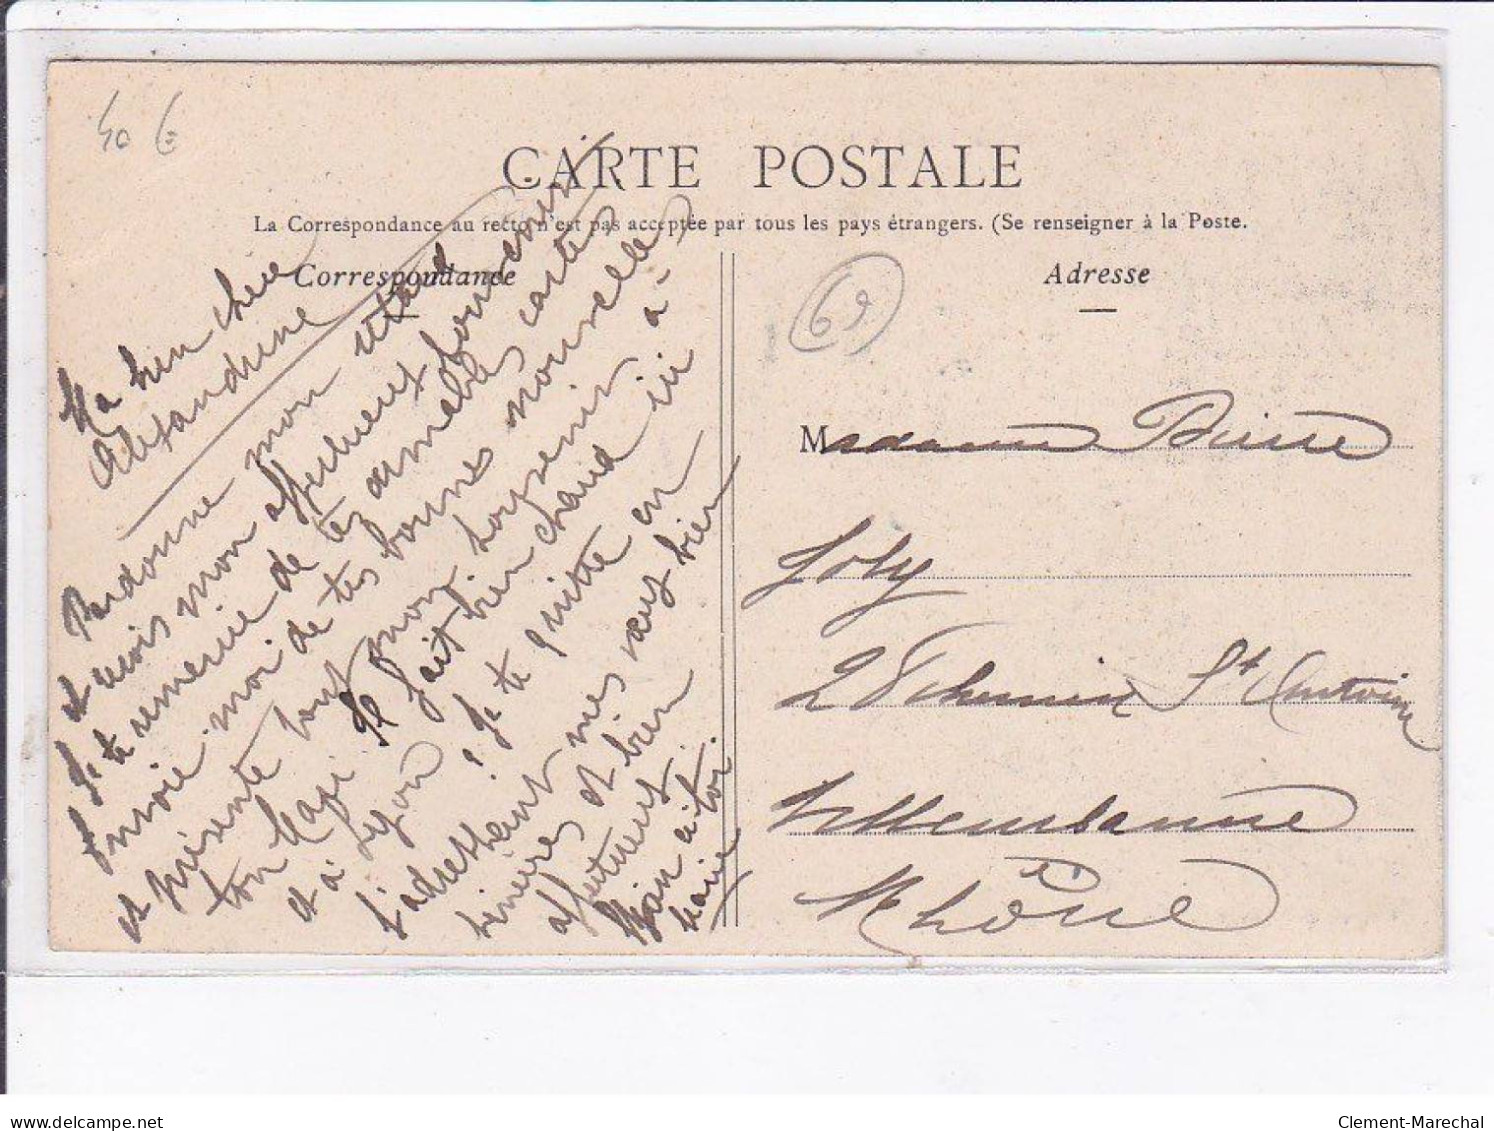 40 €
CARTE POSTALE
La Correspondance au recto n'est pas acceptée par tous les pays étrangers. (Se renseigner à la Poste.
Correspondance
Adresse
69
Ma bien chere
Alexandrine
Pardonne mon retard
et reçois mon affectueux souvenir
Je te remercie de tes aimables cartes
Envoie moi de tes bonnes nouvelles
et présente tout mon souvenir à
ton Mari. Il fait bien chaud ici
et à Lyon! Je te quitte en
t'adressant mes vœux bien
sincères et bien
affectueux.
Bien à toi
Marie
Madame Pierre
Joly
28 chemin St Antoine
Villeurbanne
Rhône
delcampe.net
Clement-Marechal